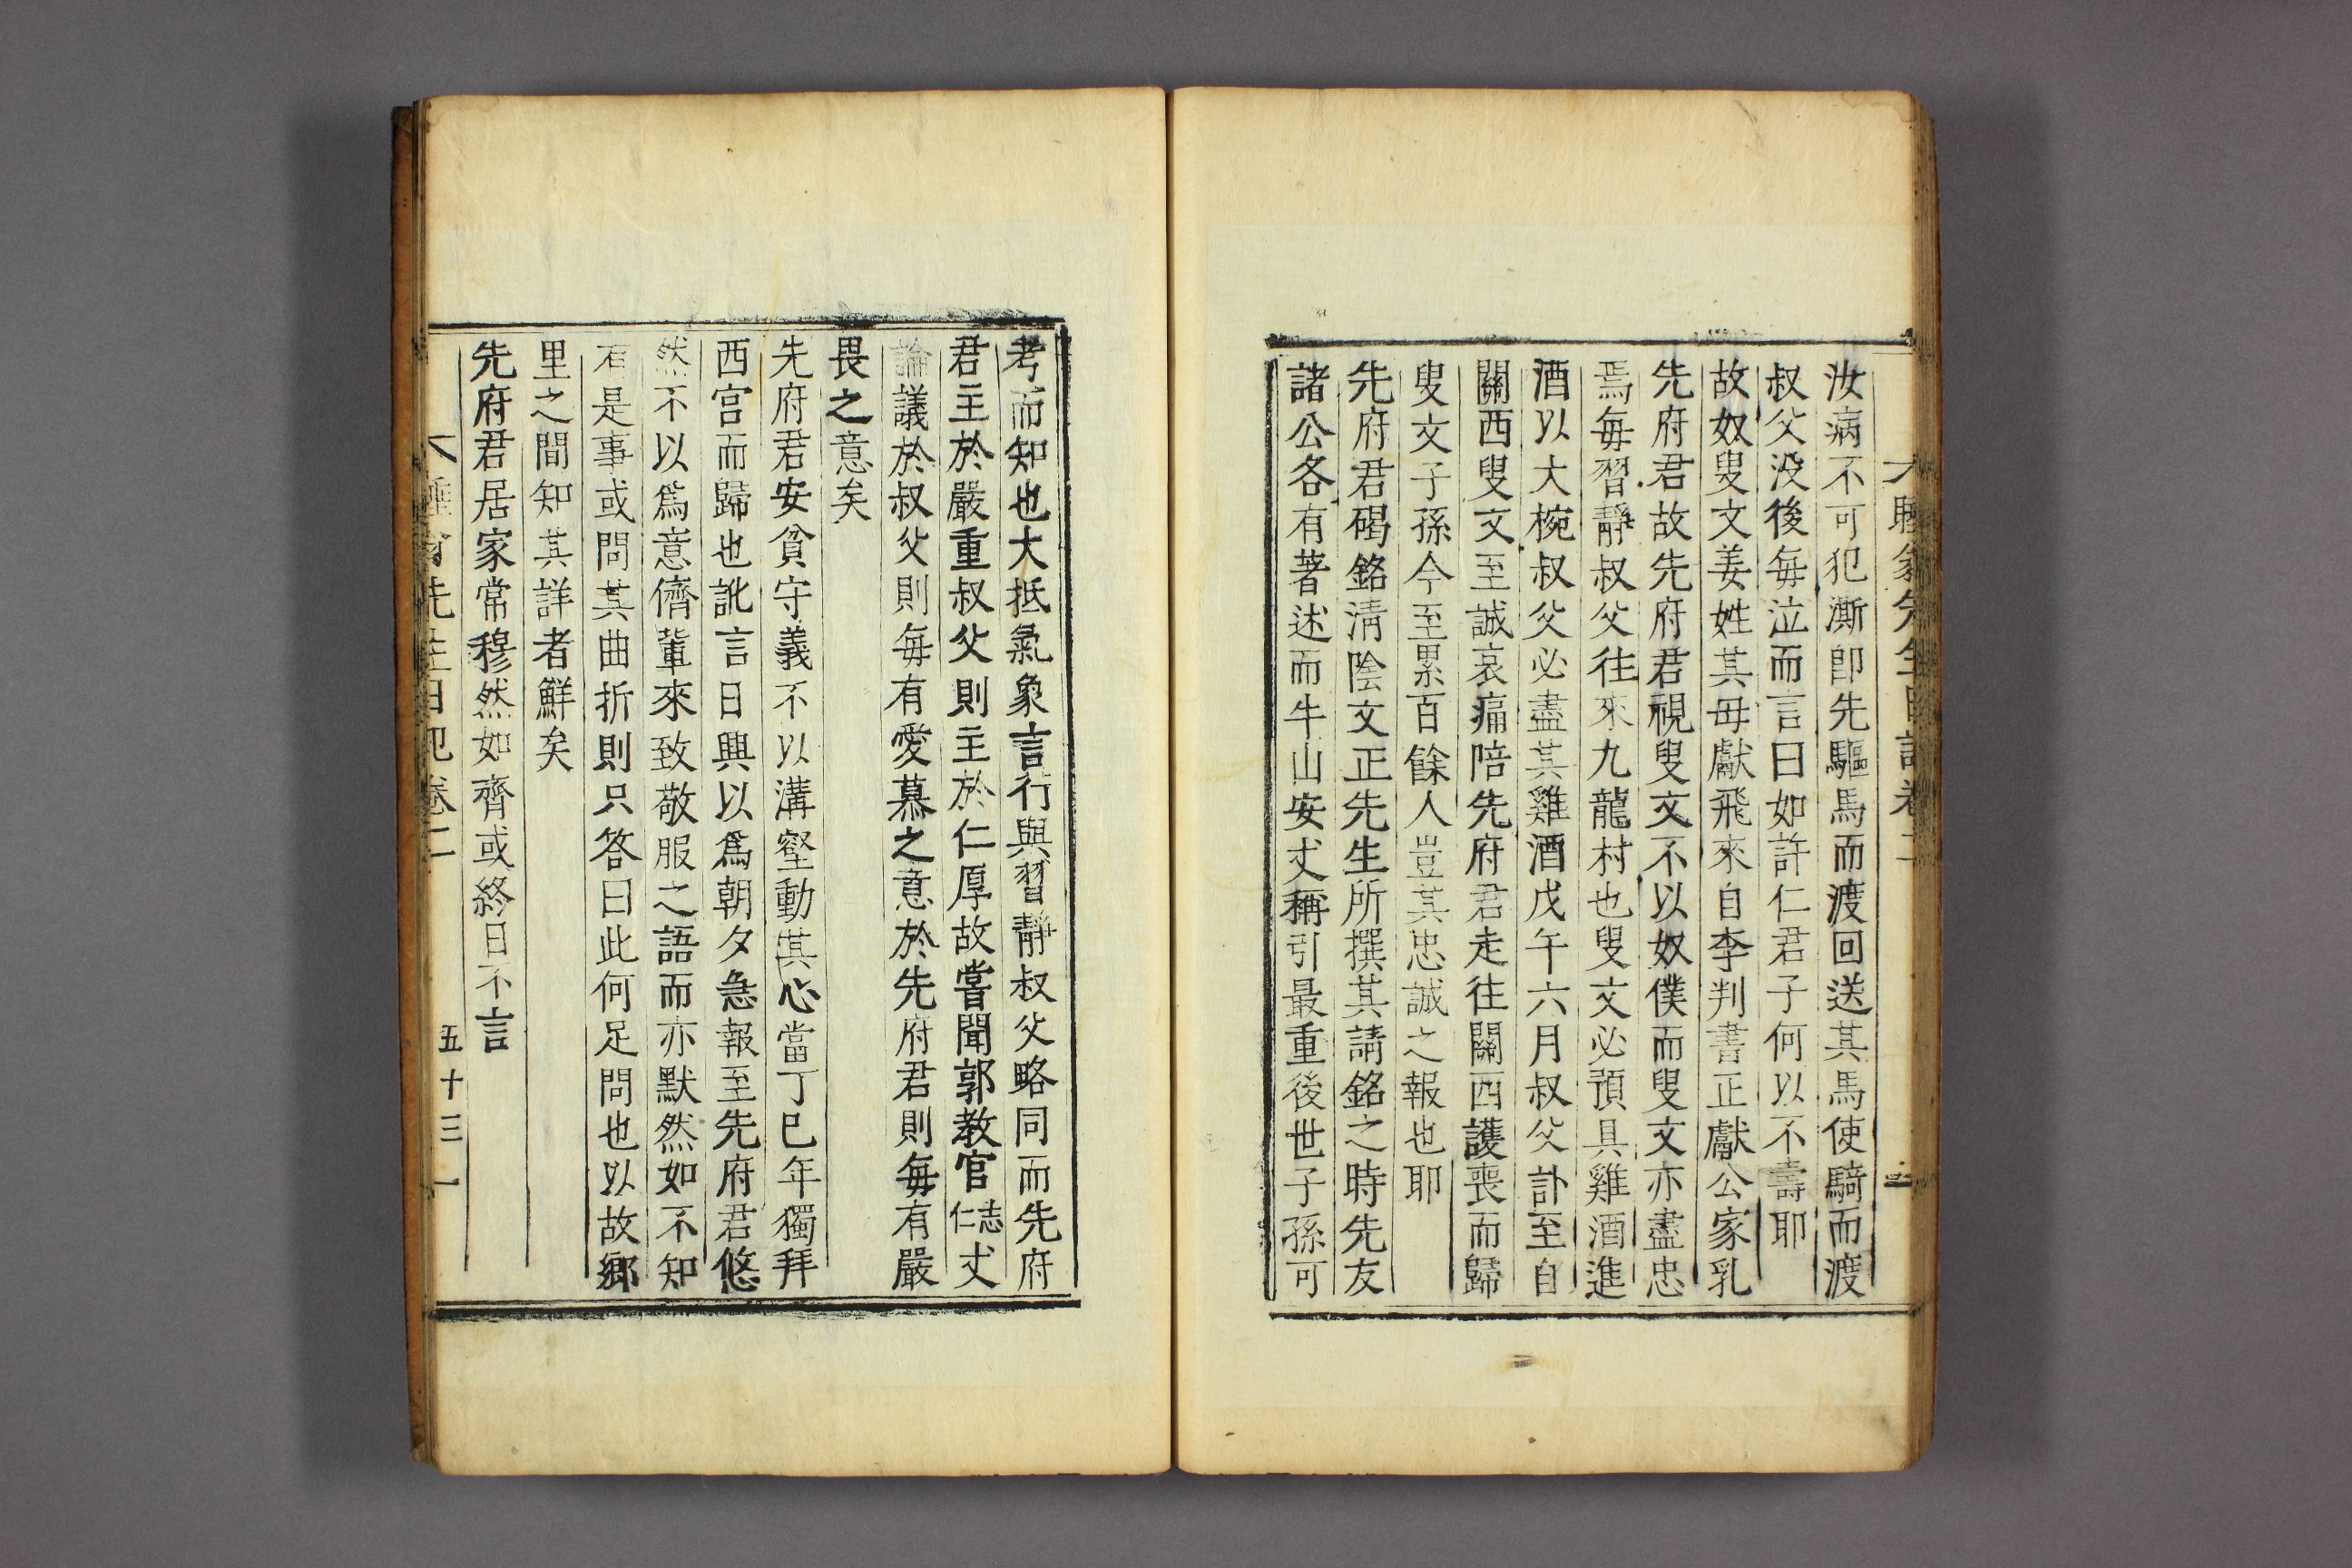 汝病不可犯澌卽先驅馬而渡回送其馬使騎而渡
叔父没後每泣而言曰如許仁君子何以不壽耶
故奴叟文姜姓其母獻飛來自李判書正獻公家乳
先府君故先府君視叟文不以奴僕而叟文亦盡忠
焉每習靜叔父往來九龍村也叟文必預具雞酒進
酒以大椀叔父必盡其雞酒戊午六月叔父訃至自
關西叟文至誠哀痛陪先府君走往關西護喪而歸
叟文子孫今至累百餘人豈其忠誠之報也耶
先府君碣銘淸陰文正先生所撰其請銘之時先友
諸公各有著述而牛山安丈稱引最重後世子孫可
考而知也大抵氣象言行與習靜叔父略同而先府
君主於嚴重叔父則主於仁厚故嘗聞郭敎官志仁丈
論議於叔父則每有愛慕之意於先府君則每有嚴
畏之意矣
先府君安貧守義不以溝壑動其心當丁巳年獨拜
西宮而歸也訛言日興以爲朝夕急報至先府君悠
然不以爲意儕輩來致敬服之語而亦默然如不知
有是事或問其曲折則只答曰此何足問也以故鄕
里之間知其詳者鮮矣
先府君居家常穆然如齊或終日不言
睡翁先生日記卷二 五十三